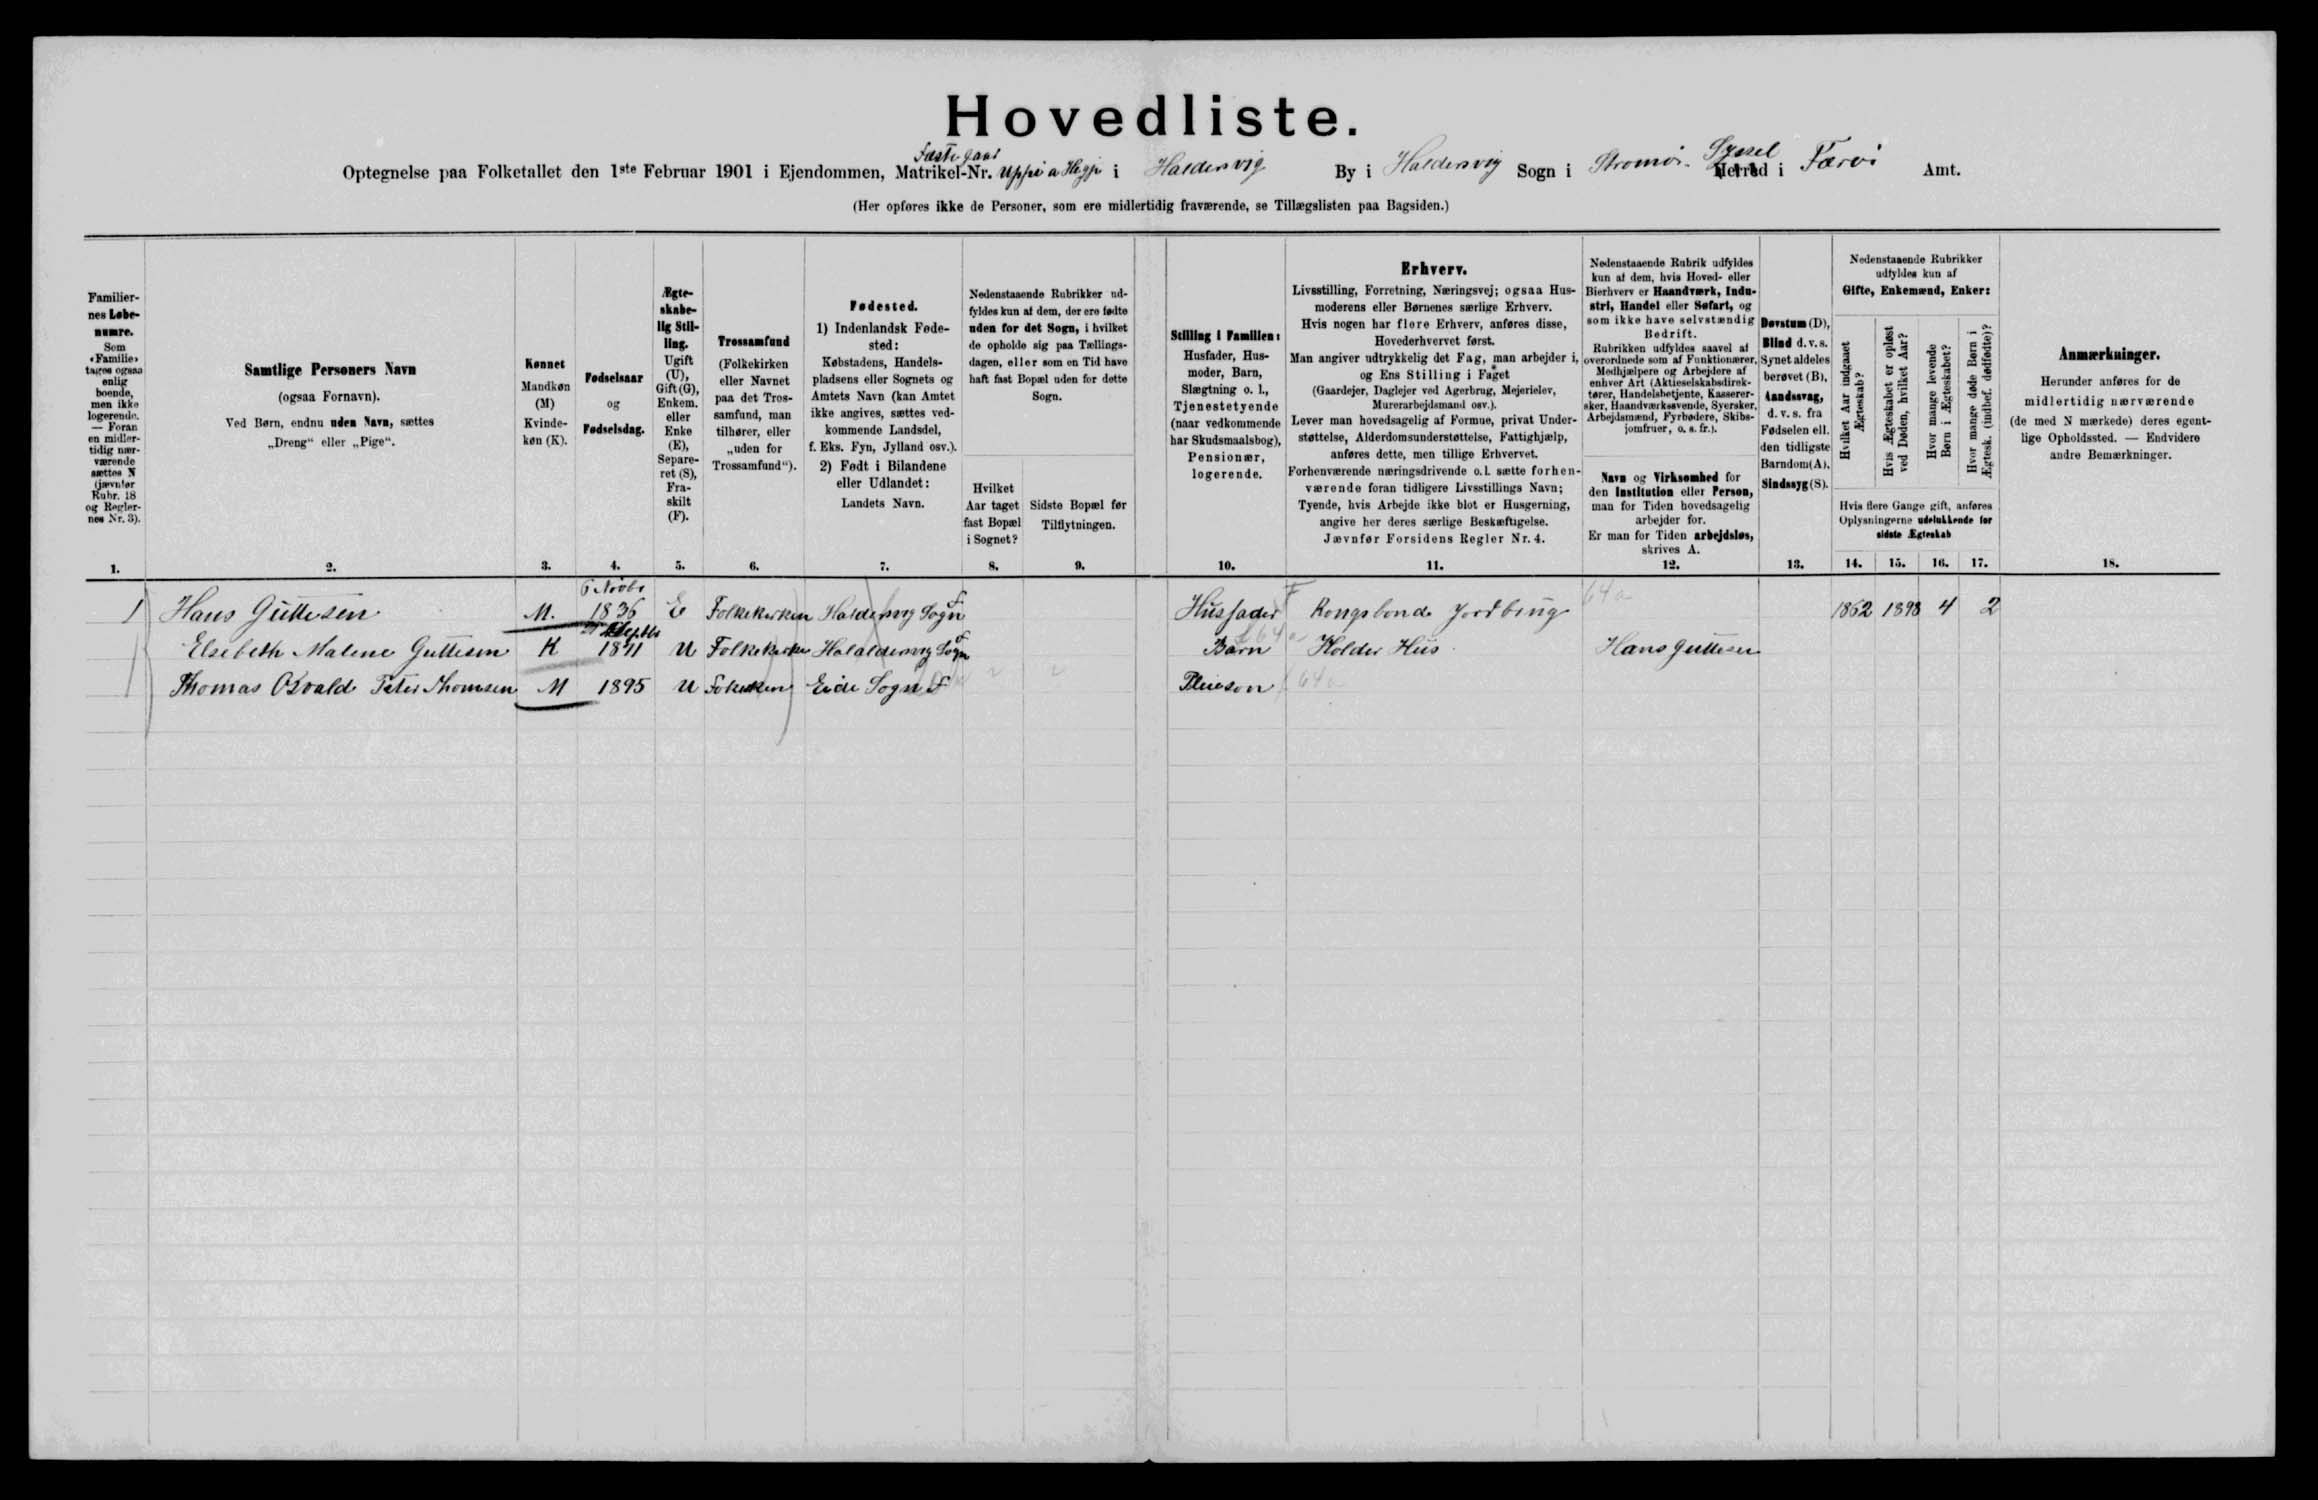 Hovedliste.
Fæstegaard
Optegnelse paa Folketallet den 1ste Februar 1901 i Ejendommen, Matrikel-Nr. Uppi a Heyji i Haldersvig By i Haldersvig Sogn i Strømø Syssel Herred i Færø Amt.
(Her opføres ikke de Personer, som ere midlertidig fraværende, se Tillægslisten paa Bagsiden.)
Familier-
nes Løbe-
numre.
Som
«Familie»
tages ogsaa
enlig
boende,
men ikke
logerende.
— Foran
en midler-
tidig nær-
værende
sættes N
(jævnfør
Rubr. 18
og Regler-
nes Nr. 3).
1.
Samtlige Personers Navn
(ogsaa Fornavn).
Ved Børn, endnu uden Navn, sættes
„Dreng“ eller „Pige“.
2.
Kønnet
Mandkøn
(M)
Kvinde-
køn (K).
3.
Fødselsaar
og
Fødselsdag.
4.
Ægte-
skabe-
lig Stil-
ling.
Ugift
(U),
Gift (G),
Enkem.
eller
Enke
(E),
Separe-
ret (S),
Fra-
skilt
(F).
5.
Trossamfund
(Folkekirken
eller Navnet
paa det Tros-
samfund, man
tilhører, eller
„uden for
Trossamfund“).
6.
Fødested.
1) Indenlandsk Føde-
sted:
Købstadens, Handels-
pladsens eller Sognets og
Amtets Navn (kan Amtet
ikke angives, sættes ved-
kommende Landsdel,
f. Eks. Fyn, Jylland osv.).
2) Født i Bilandene
eller Udlandet:
Landets Navn.
7.
Nedenstaaende Rubrikker ud-
fyldes kun af dem, der ere fødte
uden for det Sogn, i hvilket
de opholde sig paa Tællings-
dagen, eller som en Tid have
haft fast Bopæl uden for dette
Sogn.
Hvilket
Aar taget
fast Bopæl
i Sognet?
8.
Sidste Bopæl før
Tilflytningen.
9.
Stilling i Familien:
Husfader, Hus-
moder, Barn,
Slægtning o. l.,
Tjenestetyende
(naar vedkommende
har Skudsmaalsbog),
Pensionær,
logerende.
10.
Erhverv.
Livsstilling, Forretning, Næringsvej; ogsaa Hus-
moderens eller Børnenes særlige Erhverv.
Hvis nogen har flere Erhverv, anføres disse,
Hovederhvervet først.
Man angiver udtrykkelig det Fag, man arbejder i,
og Ens Stilling i Faget
(Gaardejer, Daglejer ved Agerbrug, Mejerielev,
Murerarbejdsmand osv.).
Lever man hovedsagelig af Formue, privat Under-
støttelse, Alderdomsunderstøttelse, Fattighjælp,
anføres dette, men tillige Erhvervet.
Forhenværende næringsdrivende o. l. sætte forhen-
værende foran tidligere Livsstillings Navn;
Tyende, hvis Arbejde ikke blot er Husgerning,
angive her deres særlige Beskæftigelse.
Jævnfør Forsidens Regler Nr. 4.
11.
Nedenstaaende Rubrik udfyldes
kun af dem, hvis Hoved- eller
Bierhverv er Haandværk, Indu-
stri, Handel eller Søfart, og
som ikke have selvstændig
Bedrift.
Rubrikken udfyldes saavel af
overordnede som af Funktionærer,
Medhjælpere og Arbejdere af
enhver Art (Aktieselskabsdirek-
tører, Handelsbetjente, Kasserer-
sker, Haandværkssvende, Syersker,
Arbejdsmænd, Fyrbødere, Skibs-
jomfruer, o. s. fr.).
Navn og Virksomhed for
den Institution eller Person,
man for Tiden hovedsagelig
arbejder for.
Er man for Tiden arbejdsløs,
skrives A.
12.
Døvstum (D),
Blind d. v. s.
Synet aldeles
berøvet (B),
Aandssvag,
d. v. s. fra
Fødselen ell.
den tidligste
Barndom (A),
Sindssyg (S).
13.
Nedenstaaende Rubrikker
udfyldes kun af
Gifte, Enkemænd, Enker:
Hvilket Aar indgaaet
Ægteskab?
Hvis Ægteskabet er opløst
ved Døden, hvilket Aar?
Hvor mange levende
Børn i Ægteskabet?
Hvor mange døde Børn i
Ægtesk. (indbef. dødfødte)?
Hvis flere Gange gift, anføres
Oplysningerne udelukkende for
sidste Ægteskab
14. 15. 16. 17.
Anmærkninger.
Herunder anføres for de
midlertidig nærværende
(de med N mærkede) deres egent-
lige Opholdssted. — Endvidere
andre Bemærkninger.
18.
1 Hans Guttesen M. 6 Novbr 1836 E Folkekirken Haldersvig Sogn F Husfader F Kongsbonde Jordbrug 64a 1862 1898 4 2
Elsebeth Malene Guttesen K Septbr 1871 U Folkekirke Halaldersvig Sogn F Barn 64a Holder Hus Hans Guttesen
Thomas Osvald Peter Thomsen M 1895 U Eide Sogn F Pleieson 64a